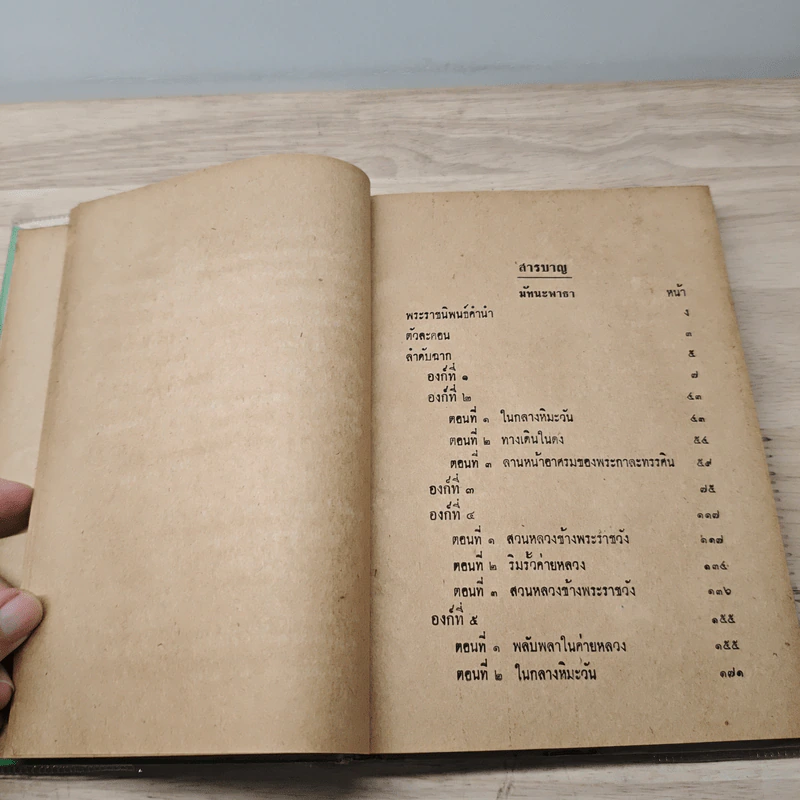 สารบาญ
มัทนะพาธา หน้า
พระราชนิพนธ์คำนำ ง
ตัวละคอน ๓
ลำดับฉาก ๕
องก์ที่ ๑ ๗
องก์ที่ ๒ ๔๓
ตอนที่ ๑ ในกลางหิมะวัน ๔๓
ตอนที่ ๒ ทางเดินในดง ๕๔
ตอนที่ ๓ ลานหน้าอาศรมของพระกาละทรรศิน ๕๙
องก์ที่ ๓ ๗๕
องก์ที่ ๔ ๑๑๗
ตอนที่ ๑ สวนหลวงข้างพระราชวัง ๑๑๗
ตอนที่ ๒ ริมรั้วค่ายหลวง ๑๓๔
ตอนที่ ๓ สวนหลวงข้างพระราชวัง ๑๓๖
องก์ที่ ๕ ๑๕๕
ตอนที่ ๑ พลับพลาในค่ายหลวง ๑๕๕
ตอนที่ ๒ ในกลางหิมะวัน ๑๗๑